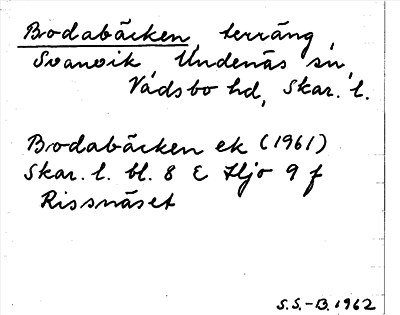 Bodabäcken, terräng,
Svanvik, Undenäs sn,
Vadsbo hd, Skar. l.
Bodabäcken ek (1961)
Skar. l. bl. 8 E Hjo 9 f
Rissnäset
S.S.-B. 1962